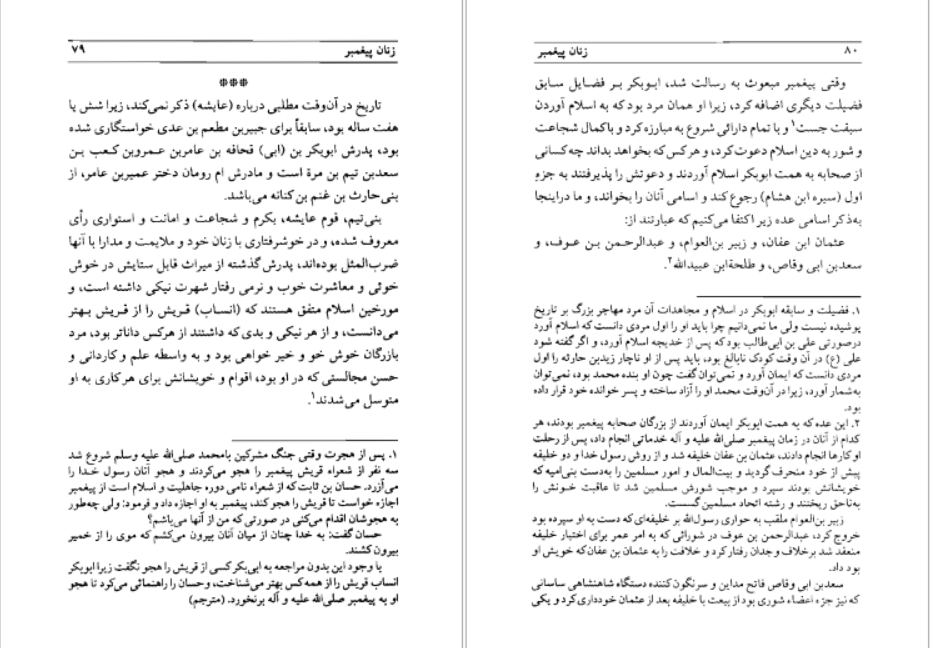 زنان پیغمبر ۷۹
***
تاریخ در آن‌وقت مطلبی درباره (عایشه) ذکر نمی‌کند، زیرا شش یا
هفت ساله بود، سابقاً برای جبیربن مطعم بن عدی خواستگاری شده
بود، پدرش ابوبکر بن (ابی) قحافه بن عامربن عمروبن کعب بن
سعدبن تیم بن مرة است و مادرش ام رومان دختر عمیربن عامر، از
بنی‌حارث بن غنم بن کنانه می‌باشد.
بنی‌تیم، قوم عایشه، بکرم و شجاعت و امانت و استواری رأی
معروف شده، و در خوشرفتاری با زنان خود و ملایمت و مدارا با آنها
ضرب‌المثل بوده‌اند، پدرش گذشته از میراث قابل ستایش در خوش
خوئی و معاشرت خوب و نرمی رفتار شهرت نیکی داشته است، و
مورخین اسلام متفق هستند که (انساب) قریش را از قریش بهتر
می‌دانست، و از هر نیکی و بدی که داشتند از هرکس داناتر بود، مرد
بازرگان خوش خو و خیر خواهی بود و به واسطه علم و کاردانی و
حسن مجالستی که در او بود، اقوام و خویشانش برای هرکاری به او
متوسل می‌شدند۱.
۱. پس از هجرت وقتی جنگ مشرکین بامحمد صلی‌الله علیه وسلم شروع شد
سه نفر از شعراء قریش پیغمبر را هجو می‌کردند و هجو آنان رسول خدا را
می‌آزرد. حسان بن ثابت که از شعراء نامی دوره جاهلیت و اسلام است از پیغمبر
اجازه خواست تا قریش را هجو کند، پیغمبر به او اجازه داد و فرمود: ولی چه‌طور
به هجوشان اقدام می‌کنی در صورتی که من از آنها می‌باشم؟
حسان گفت: به خدا چنان از میان آنان بیرون می‌کشم که موی را از خمیر
بیرون کشند.
با وجود این بدون مراجعه به ابی‌بکر کسی از قریش را هجو نگفت زیرا ابوبکر
انساب قریش را از همه کس بهتر می‌شناخت، وحسان را راهنمائی می‌کرد تا هجو
او به پیغمبر صلی‌الله علیه و آله برنخورد. (مترجم)
۸۰ زنان پیغمبر
وقتی پیغمبر مبعوث به رسالت شد، ابوبکر بر فضایل سابق
فضیلت دیگری اضافه کرد، زیرا او همان مرد بود که به اسلام آوردن
سبقت جست۱ و با تمام دارائی شروع به مبارزه کرد و باکمال شجاعت
و شور به دین اسلام دعوت کرد، و هرکس که بخواهد بداند چه کسانی
از صحابه به همت ابوبکر اسلام آوردند و دعوتش را پذیرفتند به جزءِ
اول (سیره ابن هشام) رجوع کند و اسامی آنان را بخواند، و ما دراینجا
به‌ذکر اسامی عده زیر اکتفا می‌کنیم که عبارتند از:
عثمان ابن عفان، و زبیر بن‌العوام، و عبدالرحمن بن عوف، و
سعدبن ابی وقاص، و طلحة‌ابن عبیدالله۲.
۱. فضیلت و سابقه ابوبکر در اسلام و مجاهدات آن مرد مهاجر بزرگ بر تاریخ
پوشیده نیست ولی ما نمی‌دانیم چرا باید او را اول مردی دانست که اسلام آورد
درصورتی علی بن ابی‌طالب بود که پس از خدیجه اسلام آورد، و اگر گفته شود
علی (ع) در آن وقت کودک نابالغ بود، باید پس از او ناچار زیدبن حارثه را اول
مردی دانست که ایمان آورد و نمی‌توان گفت چون او بنده محمد بود، نمی‌توان
به‌شمار آورد، زیرا در آن‌وقت محمد او را آزاد ساخته و پسر خوانده خود قرار داده
بود.
۲. این عده که به همت ابوبکر ایمان آوردند از بزرگان صحابه پیغمبر بودند، هر
کدام از آنان در زمان پیغمبر صلی‌الله علیه و آله خدماتی انجام داد، پس از رحلت
او کارها انجام دادند، عثمان بن عفان خلیفه شد و از روش رسول خدا و دو خلیفه
پیش از خود منحرف گردید و بیت‌المال و امور مسلمین را به‌دست بنی‌امیه که
خویشانش بودند سپرد و موجب شورش مسلمین شد تا عاقبت خونش را
به‌ناحق ریختند و رشته اتحاد مسلمین گسست.
زبیر بن‌العوام ملقب به حواری رسول‌الله بر خلیفه‌ای که دست به او سپرده بود
خروج کرد، عبدالرحمن بن عوف در شورائی که به امر عمر برای اختیار خلیفه
منعقد شد برخلاف وجدان رفتار کرد و خلافت را به عثمان بن عفان که خویش او
بود داد.
سعدبن ابی وقاص فاتح مداین و سرنگون‌کننده دستگاه شاهنشاهی ساسانی
که نیز جزء اعضاء شوری بود از بیعت با خلیفه بعد از عثمان خودداری کرد و یکی